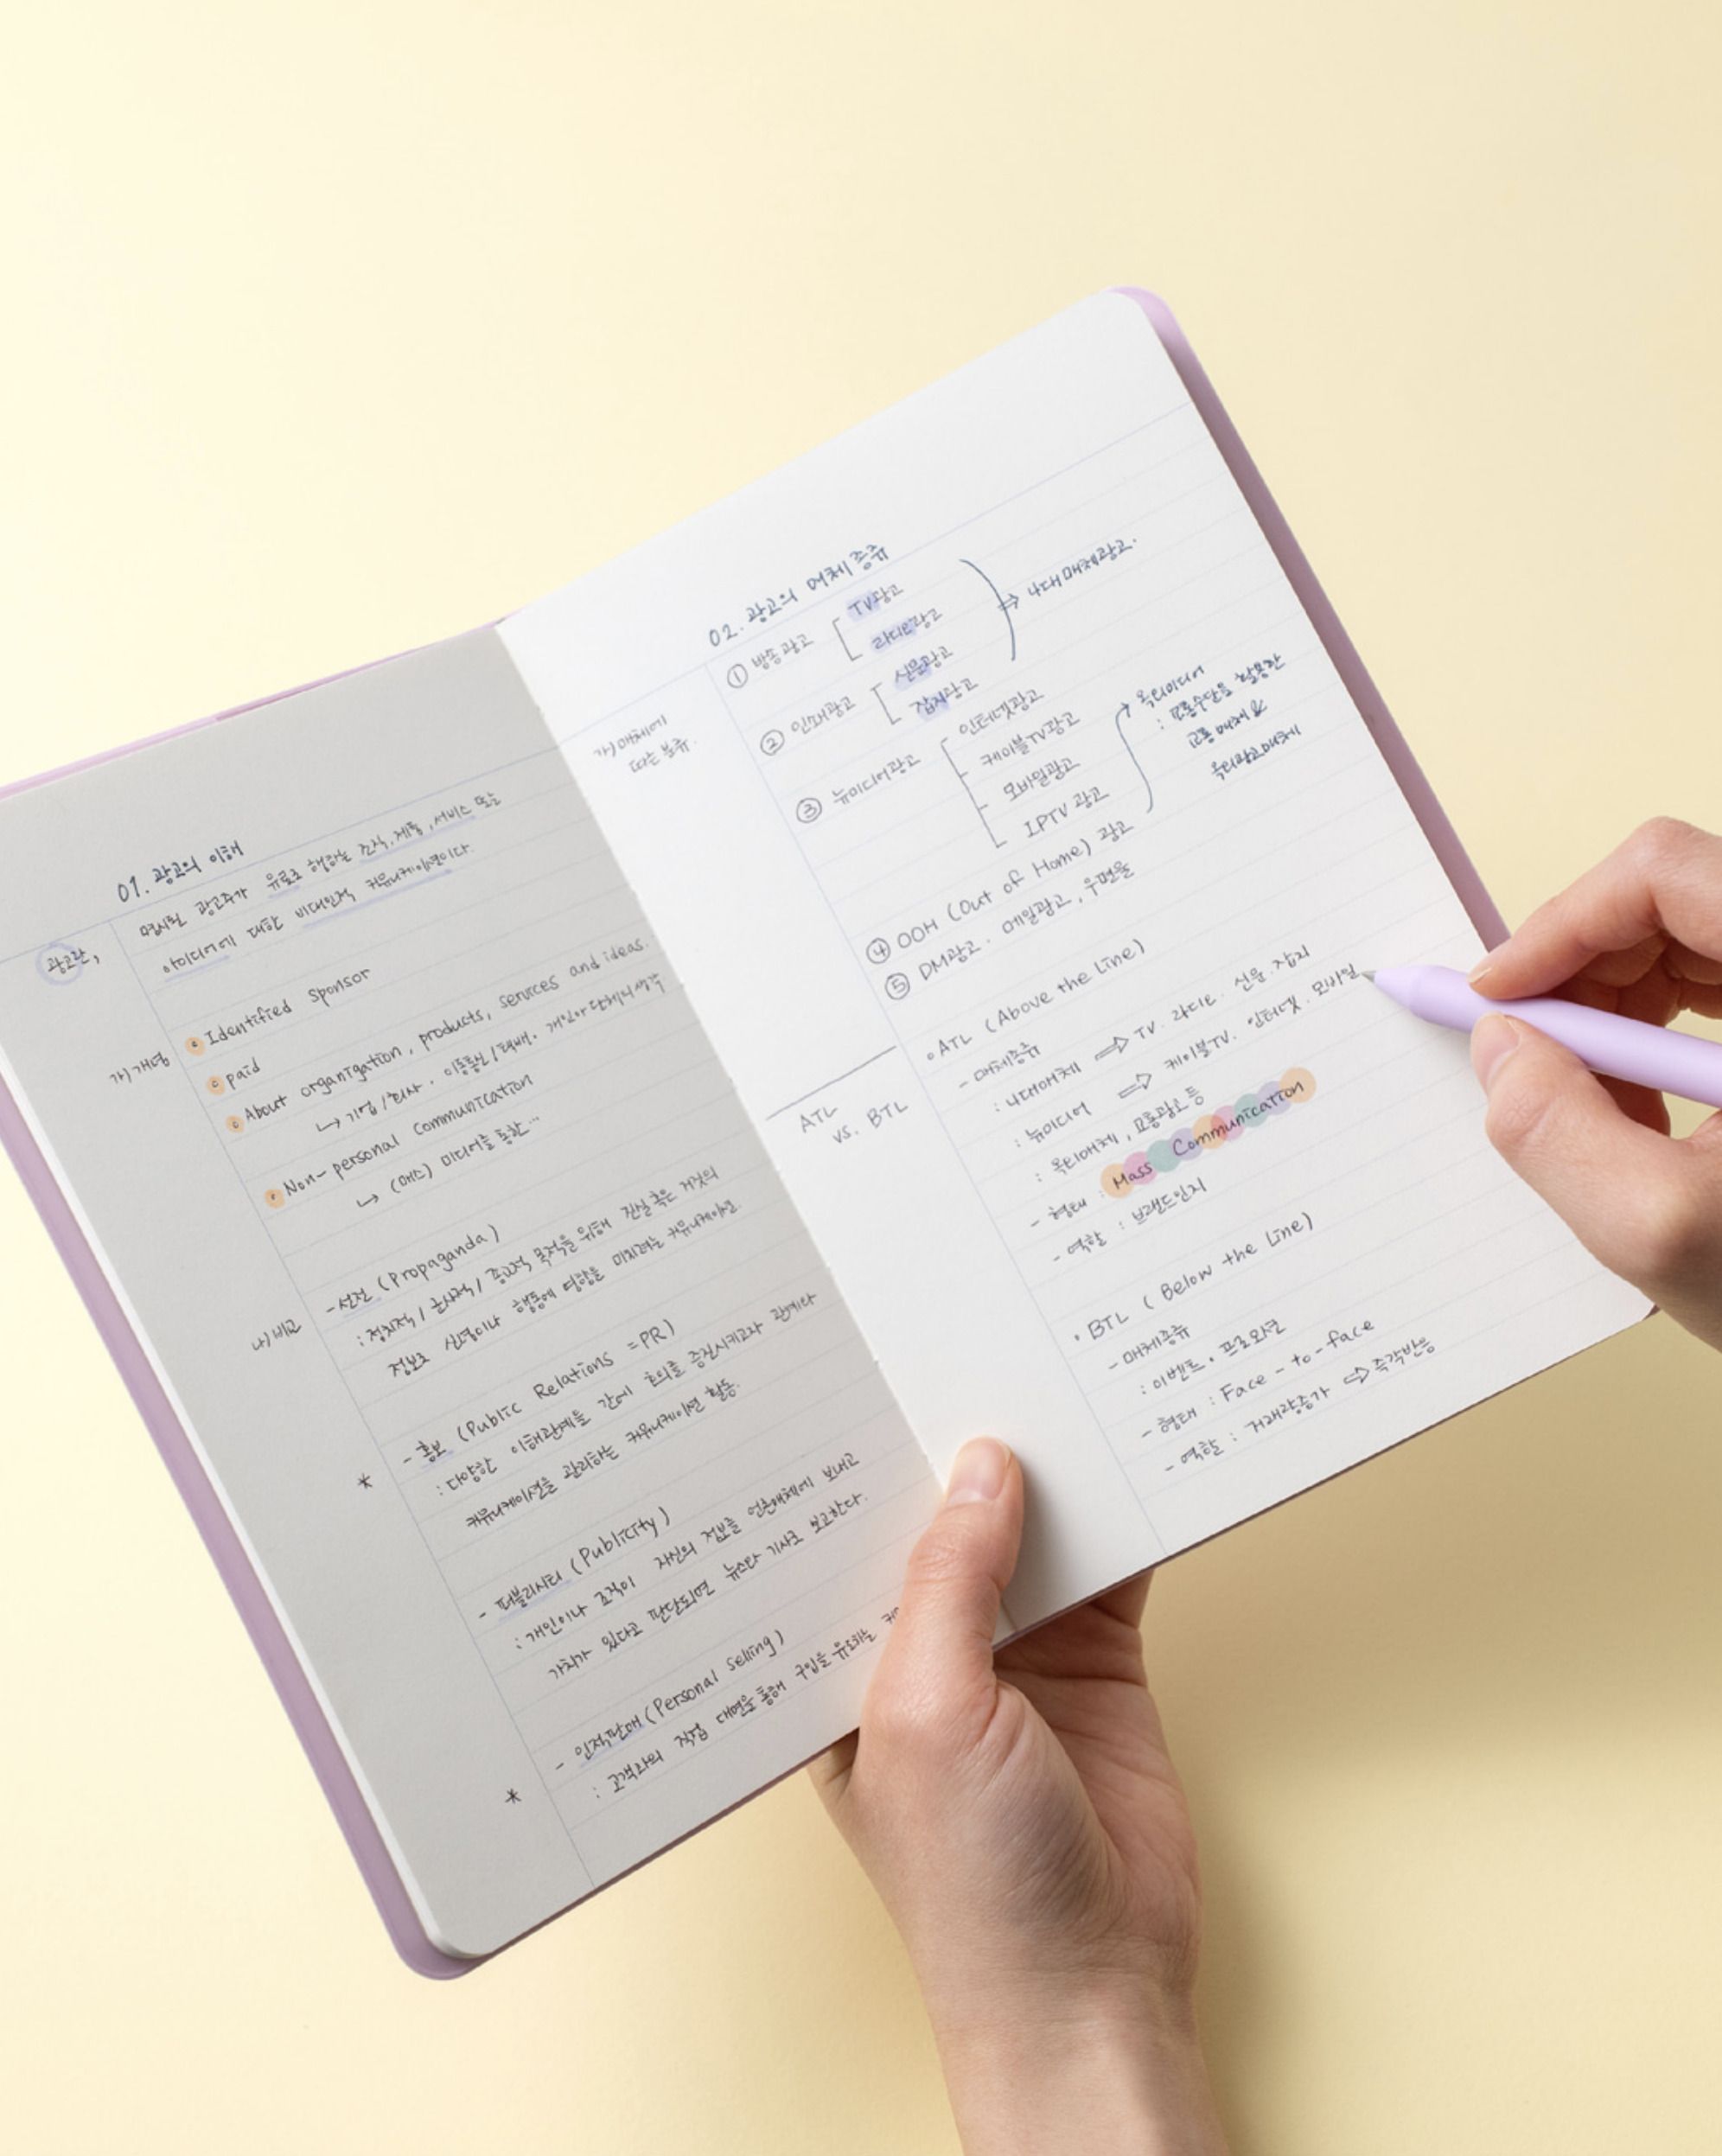 01. 광고의 이해
광고란,
명시된 광고주가 유료로 행하는 조직, 제품, 서비스 또는
아이디어에 대한 비대인적 커뮤니케이션이다.
가) 개념
Identified sponsor
paid
About organization, products, services and ideas.
↳ 기업/회사. 이동통신/택배. 개인이나 단체의 생각
Non-personal communication
↳ (매스) 미디어를 통한…
나) 비교
- 선전 (Propaganda)
: 정치적/군사적/종교적 목적을 위해 진실 혹은 거짓의
정보로 신념이나 행동에 영향을 미치려는 커뮤니케이션.
- 홍보 (Public Relations =PR)
*
: 다양한 이해관계들 간에 호의를 증진시키고자 관계다
커뮤니케이션을 관리하는 커뮤니케이션 활동.
- 퍼블리시티 (Publicity)
: 개인이나 조직이 자신의 정보를 언론매체에 보내고
가치가 있다고 판단되면 뉴스나 기사로 보고한다.
- 인적판매 (Personal selling)
*
: 고객과의 직접 대면을 통해 구입을 유도하는
02. 광고의 매체 종류
가) 매체에
따른 분류.
① 방송광고
TV광고
라디오광고
② 인쇄광고
신문광고
잡지광고
⇒ 4대 매체광고.
③ 뉴미디어광고
인터넷광고
케이블TV광고
모바일광고
IPTV 광고
옥외미디어
: 교통수단을 활용한
교통매체 &
옥외광고매체
④ OOH (Out of Home) 광고
⑤ DM광고. 메일광고, 우편물
ATL
vs. BTL
• ATL (Above the Line)
- 매체종류
: 4대매체 ⇒ TV. 라디오. 신문. 잡지
: 뉴미디어 ⇒ 케이블TV. 인터넷. 모바일
: 옥외매체, 교통광고 등
- 형태 : Mass Communication
- 역할 : 브랜드인지
• BTL (Below the Line)
- 매체종류
: 이벤트. 프로모션
- 형태 : Face-to-face
- 역할 : 거래량증가 ⇒ 즉각반응